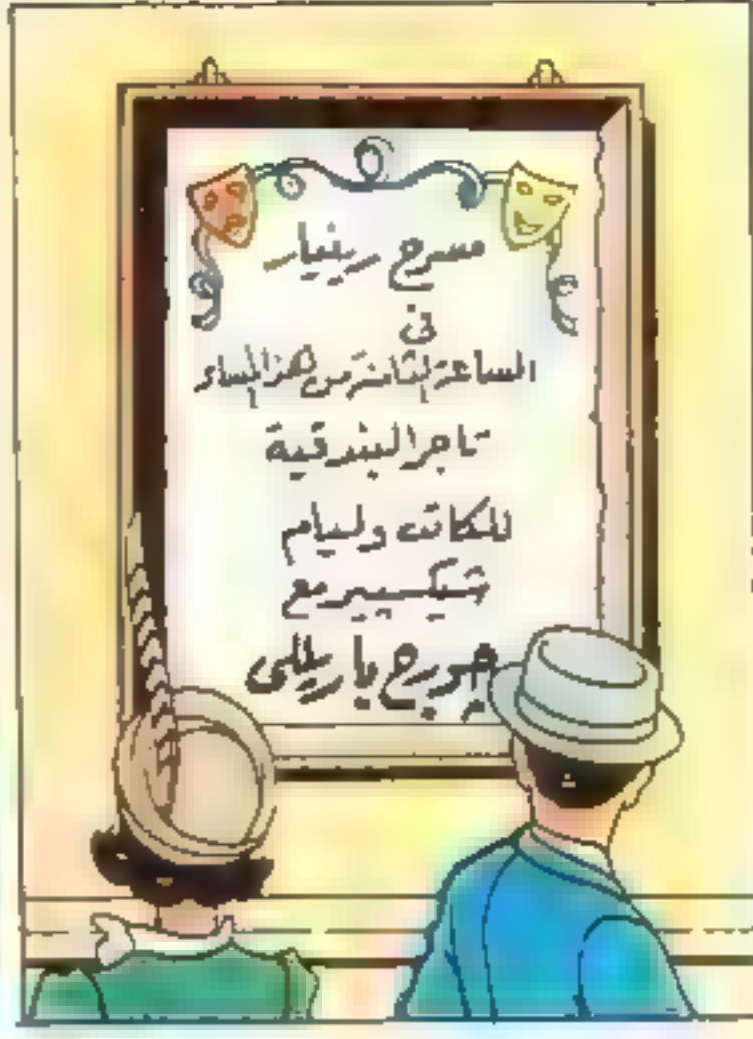 مسرح رينيار
فى
الساعة الثامنة من هذا المساء
تاجر البندقية
للكاتب وليام
شيكسبير مع
چورچ باريللى